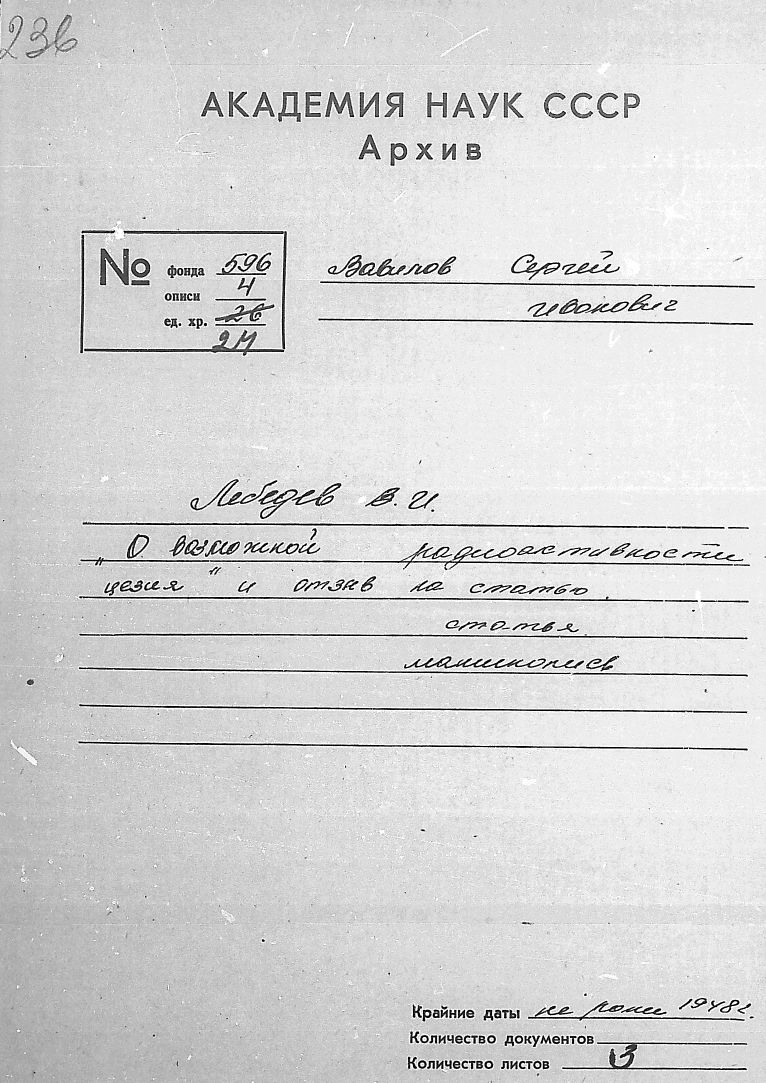 236
АКАДЕМИЯ НАУК СССР
Архив
№ фонда 596
описи 4
ед. хр. 26
Вавилов Сергей
Иванович
Лебедев В. И.
„О возможной радиоактивности
цезия" и отзыв на статью.
статья
машинопись
Крайние даты не ранн 1948 г.
Количество документов
Количество листов 3